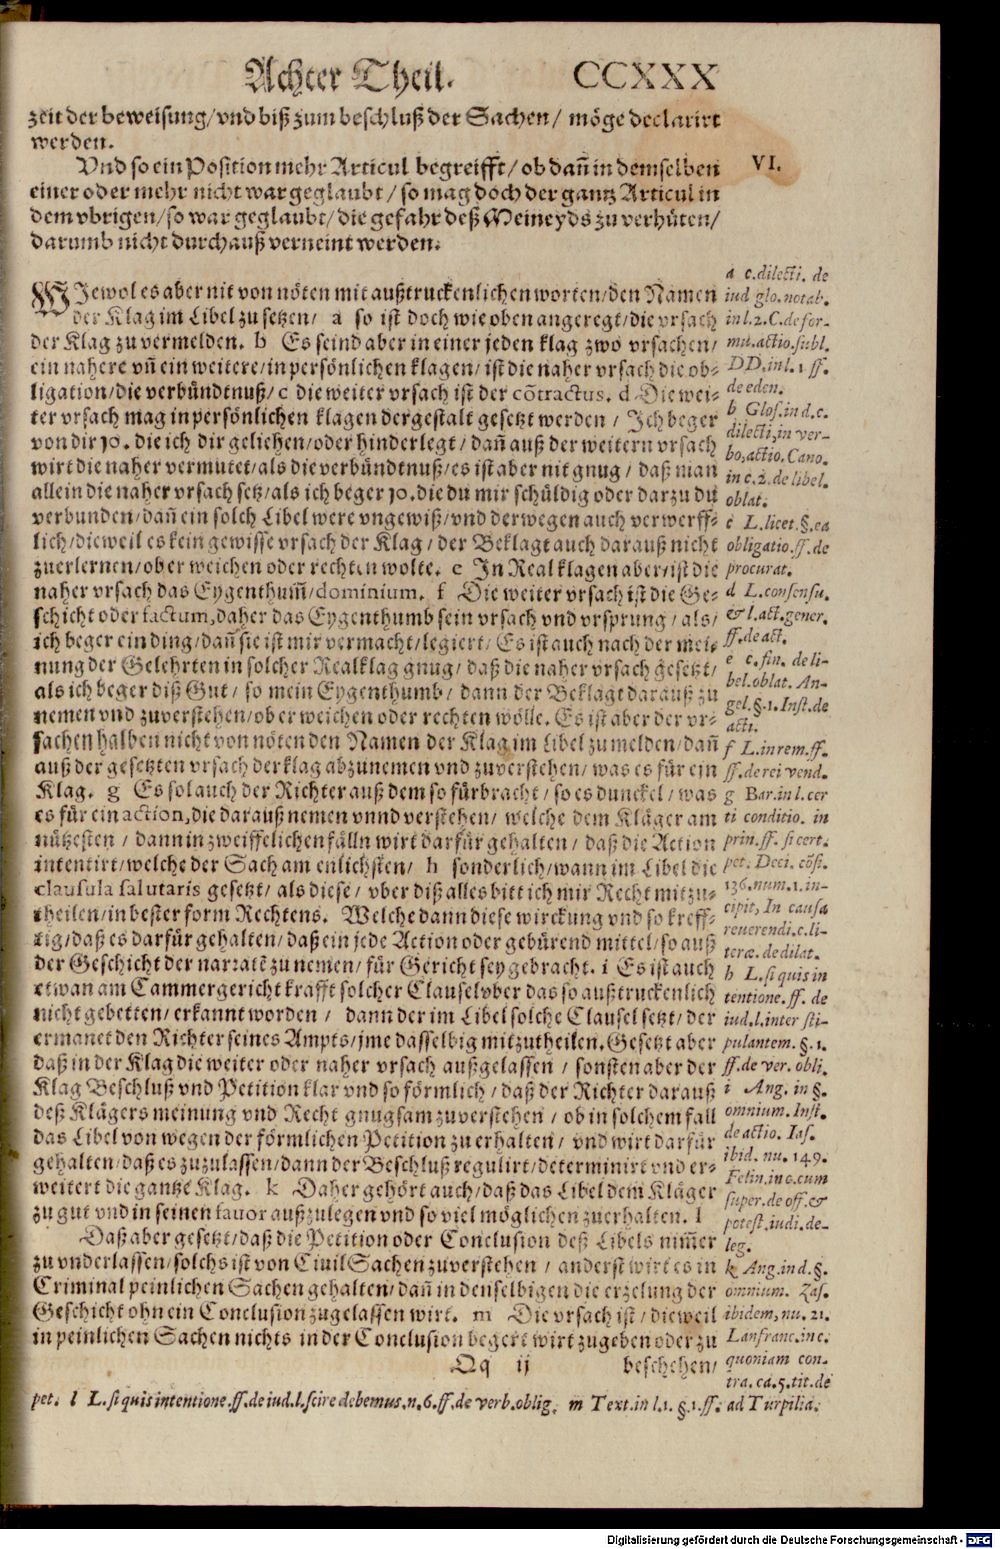 Achter Theil. CCXXX
zeit der beweisung/vnd biß zum beschluß der Sachen/ möge declarirt
werden.
Vnd so ein Position mehr Articul begreifft/ ob dañ in demselben
einer oder mehr nicht war geglaubt/ so mag doch der gantz Articul in
dem vbrigen/so war geglaubt/die gefahr deß Meineyds zu verhüten/
darumb nicht durchauß verneint werden.
VI.
WJewol es aber nit von nöten mit außtruckenlichen worten/den Namen
der Klag im Libel zu setzen/ a so ist doch wie oben angeregt/die vrsach
der Klag zu vermelden. b Es seind aber in einer jeden klag zwo vrsachen/
ein nahere vñ ein weitere/in persönlichen klagen/ ist die naher vrsach die ob-
ligation/die verbündtnuß/ c die weiter vrsach ist der cõtractus. d Die wei-
ter vrsach mag in persönlichen klagen dergestalt gesetzt werden/ Ich beger
von dir 10. die ich dir geliehen/oder hinderlegt/ dañ auß der weitern vrsach
wirt die naher vermutet/als die verbündtnuß/es ist aber nit gnug/ daß man
allein die naher vrsach setz/als ich beger 10. die du mir schüldig oder darzu du
verbunden/dañ ein solch Libel were vngewiß/vnd derwegen auch verwerff-
lich/dieweil es kein gewisse vrsach der Klag/der Beklagt auch darauß nicht
zuerlernen/ob er weichen oder rechten wolte. e In Realklagen aber/ist die
naher vrsach das Eygenthum̃/dominium. f Die weiter vrsach ist die Ge-
schicht oder factum, daher das Eygenthumb sein vrsach vnd vrsprung/als/
ich beger ein ding/dañ sie ist mir vermacht/legiert/ Es ist auch nach der mei-
nung der Gelehrten in solcher Realklag gnug/ daß die naher vrsach gesetzt/
als ich beger diß Gut/ so mein Eygenthumb/ dann der Beklagt darauß zu
nemen vnd zuverstehen/ob er weichen oder rechten wölle. Es ist aber der vr-
sachen halben nicht von nöten den Namen der Klag im Libel zu melden/dañ
auß der gesetzten vrsach der klag abzunemen vnd zuverstehen/ was es für ein
Klag. g Es sol auch der Richter auß dem so fürbracht/ so es dunckel/ was
es für ein action, die darauß nemen vnnd verstehen/ welche dem Kläger am
nützesten/ dann in zweiffelichen fälln wirt darfür gehalten/ daß die Action
intentirt/welche der Sach am enlichsten/ h sonderlich/wann im Libel die
clausula salutaris gesetzt/ als diese/ vber diß alles bitt ich mir Recht mitzu-
theilen/in bester form Rechtens. Welche dann diese wirckung vnd so kreff-
tig/daß es darfür gehalten/ daß ein jede Action oder gebürend mittel/so auß
der Geschicht der narratē zu nemen/ für Gericht sey gebracht. i Es ist auch
etwan am Cammergericht krafft solcher Clausel vber das so außtruckenlich
nicht gebetten/ erkannt worden/ dann der im Libel solche Clausel setzt/ der
ermanet den Richter seines Ampts/jme dasselbig mitzutheilen. Gesetzt aber
daß in der Klag die weiter oder naher vrsach außgelassen/ sonsten aber der
Klag Beschluß vnd Petition klar vnd so förmlich/ daß der Richter darauß
deß Klägers meinung vnd Recht gnugsam zuverstehen/ ob in solchem fall
das Libel von wegen der förmlichen Petition zu erhalten/ vnd wirt darfür
gehalten/daß es zuzulassen/dann der Beschluß regulirt/determinirt vnd er-
weitert die gantze Klag. k Daher gehört auch/daß das Libel dem Kläger
zu gut vnd in seinen fauor außzulegen vnd so viel möglichen zuerhalten. l
Daß aber gesetzt/daß die Petition oder Conclusion deß Libels nim̃er
zu vnderlassen/solchs ist von Civil Sachen zuverstehen/ anderst wirt es in
Criminal peinlichen Sachen gehalten/dañ in denselbigen die erzelung der
Geschicht ohn ein Conclusion zugelassen wirt. m Die vrsach ist/dieweil
in peinlichen Sachen nichts in der Conclusion begert wirt zugeben oder zu
Qq ij beschehen/
a c. dilecti. de
iud glo. notab.
in l. 2. C. de for-
mu. actio. subl.
DD. in l. 1 ff.
de eden.
b Glos. in d. c.
dilecti, in ver-
bo, actio. Cano.
in c. 2. de libel.
oblat.
c L. licet. §. ea
obligatio. ff. de
procurat.
d L. consensu.
& l. act. gener.
ff. de act.
e c. fin. de li-
bel. oblat. An-
gel. §. 1. Inst. de
acti.
f L. in rem. ff.
ff. de rei vend.
g Bar. in l. cer
ti conditio. in
prin. ff. si cert.
pet. Deci. cõs.
136. num. 1. in-
cipit, In causa
reuerendi. c. li-
teræ. de dilat.
h L. si quis in
tentione. ff. de
iud. l. inter sti-
pulantem. §. 1.
ff. de ver. obli.
i Ang. in §.
omnium. Inst.
de actio. Ias.
ibid. nu. 149.
Felin. in c. cum
super. de off. &
potest. iudi. de-
leg.
k Ang. in d. §.
omnium. Zas.
ibidem, nu. 21.
Lanfranc. in c.
quoniam con-
tra. ca. 5. tit. de
pet. l L. si quis intentione. ff. de iud. l. scire debemus. n. 6. ff. de verb. oblig. m Text. in l. 1. §. 1. ff. ad Turpilia.
Digitalisierung gefördert durch die Deutsche Forschungsgemeinschaft - DFG